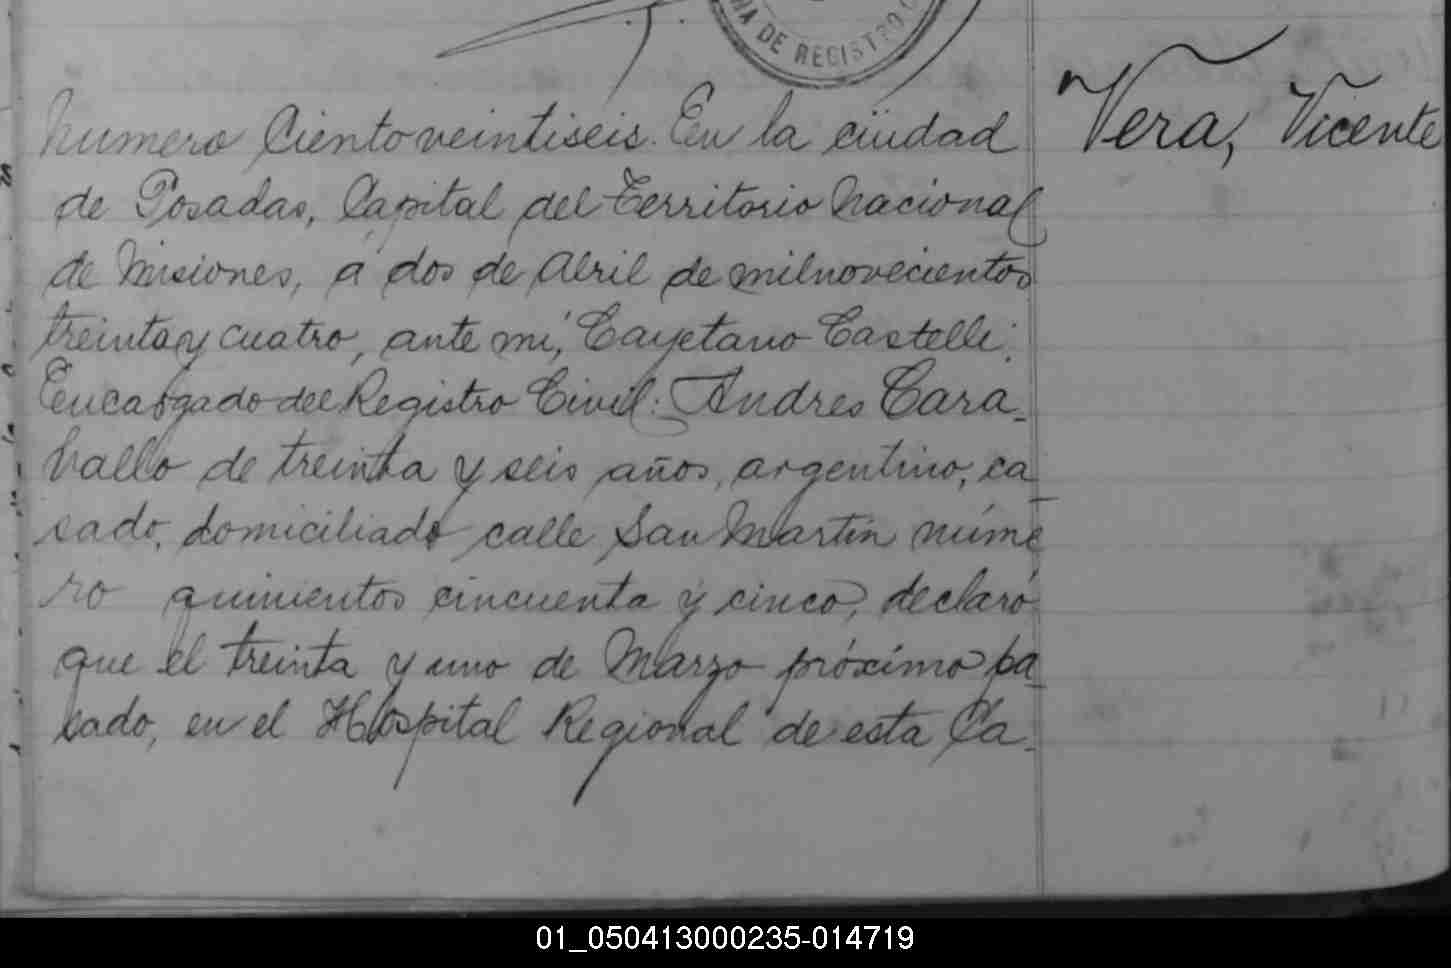 IA DE REGISTRO
Numero Ciento veintiseis. En la ciudad
Vera, Vicente
de Posadas, Capital del Territorio Nacional
de Misiones, a dos de Abril de milnovecientos
treinta y cuatro, ante mí, Cayetano Castelli.
Encargado del Registro Civil: Andres Cara-
ballo de treinta y seis años, argentino, ca-
sado, domiciliado calle San Martín núme
ro quinientos cincuenta y cinco, declaró
que el treinta y uno de Marzo próximo pa-
sado, en el Hospital Regional de esta Ca-
01_050413000235-014719